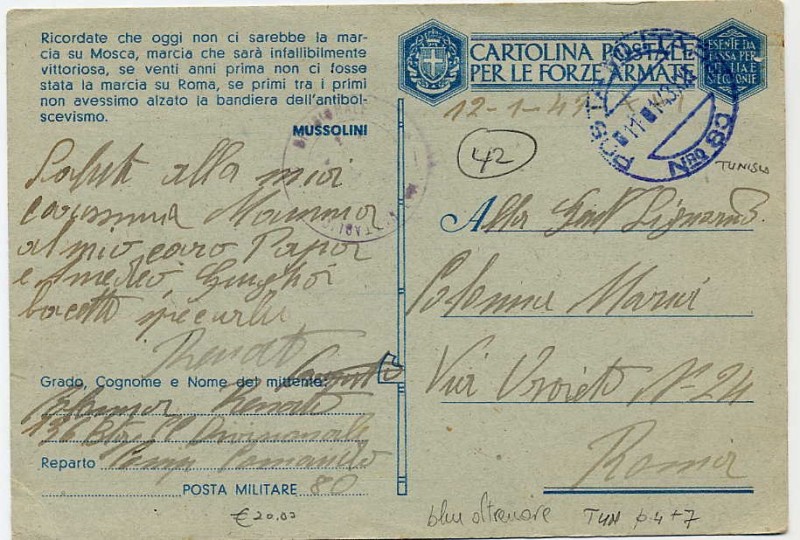 Ricordate che oggi non ci sarebbe la mar-
cia su Mosca, marcia che sarà infallibilmente
vittoriosa, se venti anni prima non ci fosse
stata la marcia su Roma, se primi tra i primi
non avessimo alzato la bandiera dell'antibol-
scevismo.
MUSSOLINI
Saluti alla mia
carissima Mamma
al mio caro Papà
e Amedeo
Renato
Grado, Cognome e Nome del mittente:
Renato
Reparto Comp Comando
POSTA MILITARE 80
€20,00
CARTOLINA POSTALE
PER LE FORZE ARMATE
ESENTE DA
TASSA PER
L'ITALIA E
12-1-43
42
POSTA MILITARE
NRO 80
TUNISIA
Alla Gent Signora
Maria
Via Orvieto N-24
Roma
blu oltremare
TUN 64+7